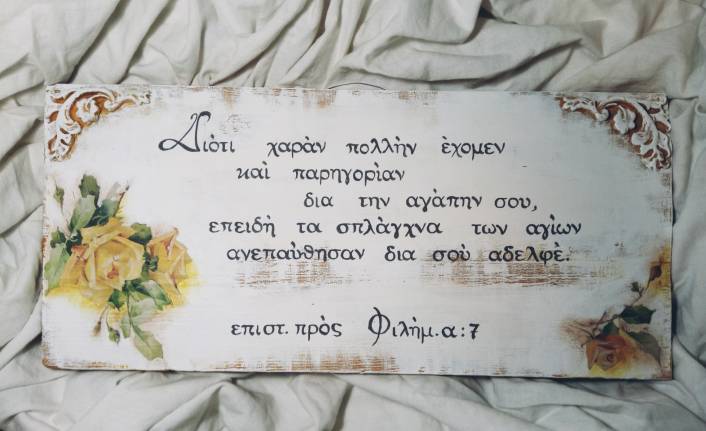 Διὸτι χαρὰν πολλὴν ὲχομεν
καὶ παρηγορὶαν
δια την αγὰπην σου,
επειδὴ τα σπλὰγχνα των αγὶων
ανεπαὺθησαν δια σοὺ αδελφὲ.
επιστ. πρὸς Φιλὴμ. α: 7